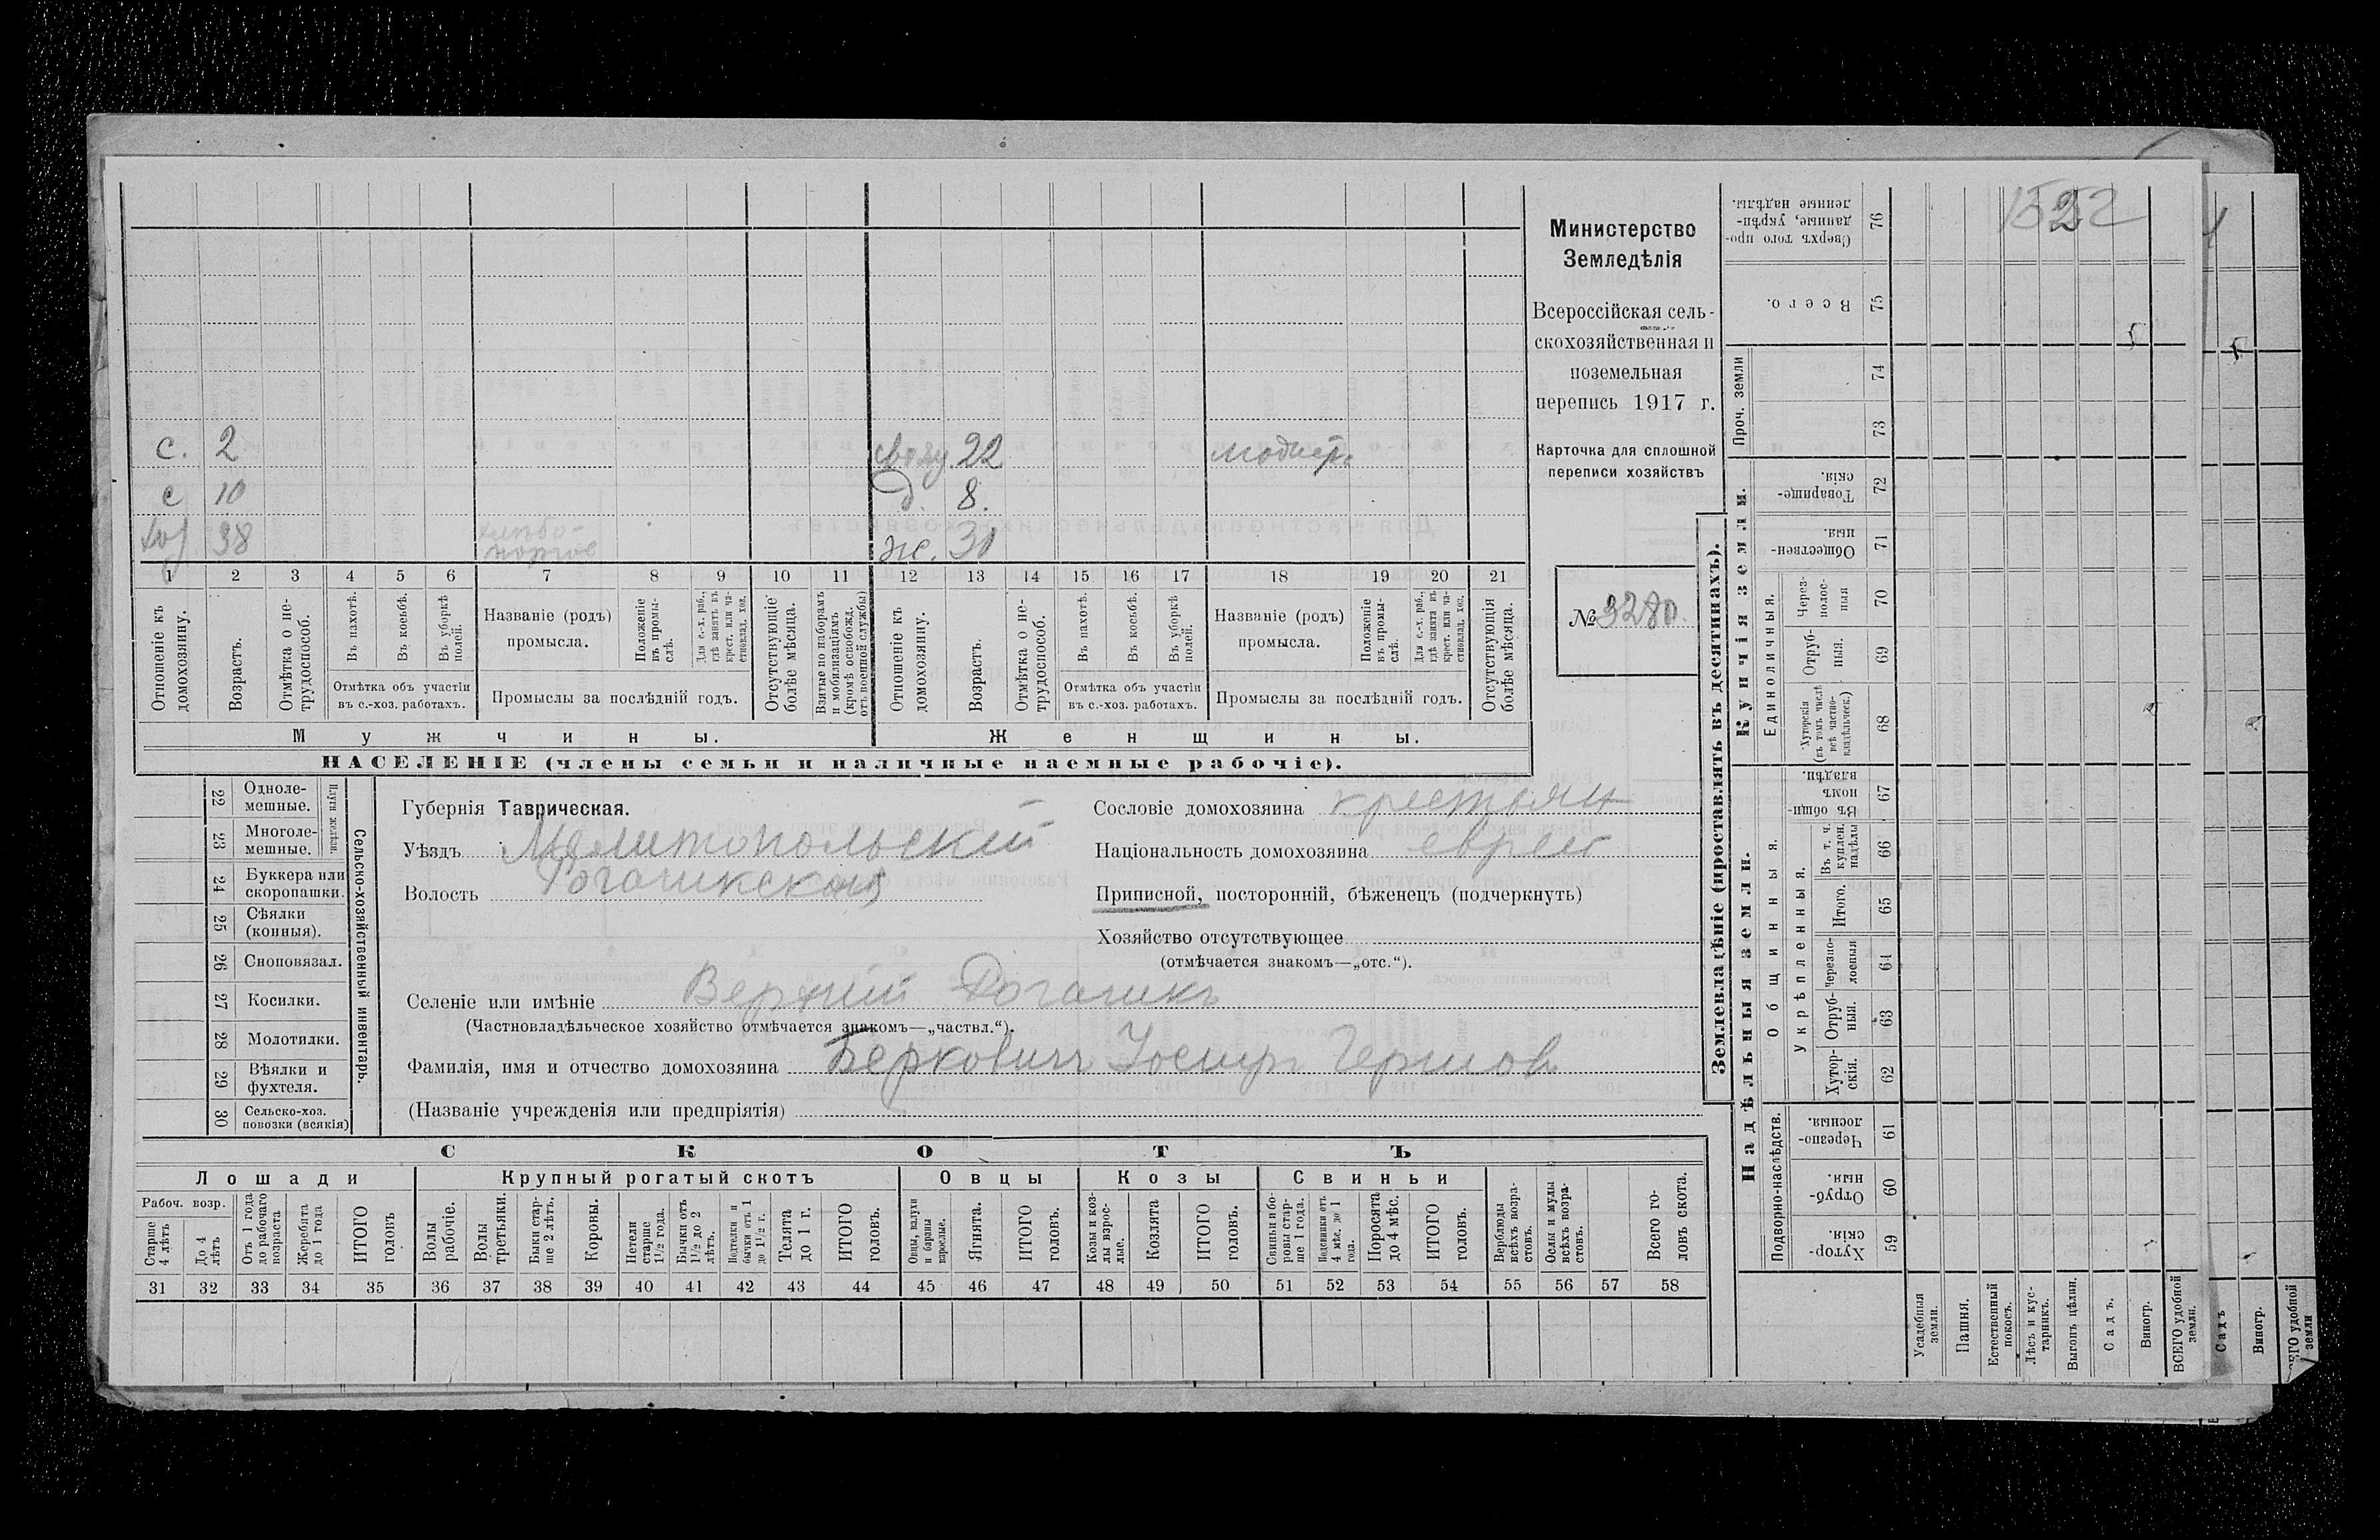 1522
с. 2 22
с 10 д. 8.
38 ж. 30
1 2 3 4 5 6 7 8 9 10 11 12 13 14 15 16 17 18 19 20 21
Отношеніе къ домохозяину.
Возрастъ.
Отмѣтка о не-
трудоспособ.
Въ пахотѣ.
Въ косьбѣ.
Въ уборкѣ полей.
Отмѣтка объ участіи
въ с.-хоз. работахъ.
Названіе (родъ)
промысла.
Положеніе
въ промы-
слѣ.
Для с.-х. раб.,
гдѣ занятъ въ
крест. или ча-
стновлад. хоз.
Промыслы за послѣдній годъ.
Отсутствующіе
болѣе мѣсяца.
Взятые по наборамъ
и мобилизаціямъ
(кромѣ освобожд.
отъ военной службы)
Отношеніе къ
домохозяину.
Возрастъ.
Отмѣтка о не-
трудоспособ.
Въ пахотѣ.
Въ косьбѣ.
Въ уборкѣ
полей.
Отмѣтка объ участіи
въ с.-хоз. работахъ.
Названіе (родъ)
промысла.
Положеніе
въ промы-
слѣ.
Для с.-х. раб.,
гдѣ занята въ
крест. или ча-
стновлад. хоз.
Промыслы за послѣдній годъ.
Отсутствующія
болѣе мѣсяца.
Мужчины. Женщины.
НАСЕЛЕНІЕ (члены семьи и наличные наемные рабочіе).
Министерство
Земледѣлія
Всероссійская сель-
скохозяйственная и
поземельная
перепись 1917 г.
Карточка для сплошной
переписи хозяйствъ
№ 3280.
22 Одноле-
мешные.
23 Многоле-
мешные.
Плуги желѣзн.
24 Буккера или
скоропашки.
25 Сѣялки
(конныя).
26 Сноповязал.
27 Косилки.
28 Молотилки.
29 Вѣялки и
фухтеля.
30 Сельско-хоз.
повозки (всякія)
Сельско-хозяйственный инвентарь.
Губернія Таврическая.
Уѣздъ Мелитопольскій
Волость Рогачикская
Сословіе домохозяина крестьян
Національность домохозяина еврей
Приписной, посторонній, бѣженецъ (подчеркнуть)
Хозяйство отсутствующее
(отмѣчается знакомъ—„отс.“).
Селеніе или имѣніе Верхній Рогачикъ
(Частновладѣльческое хозяйство отмѣчается знакомъ—„частвл.“).
Фамилія, имя и отчество домохозяина Беркович Іосиф Гершов
(Названіе учрежденія или предпріятія)
СКОТЪ
Лошади Крупный рогатый скотъ Овцы Козы Свиньи
Рабоч. возр.
Старше
4 лѣтъ
До 4
лѣтъ
Отъ 1 года
до рабочаго
возраста
Жеребята
до 1 года
ИТОГО
головъ
Волы
рабочіе.
Волы
третьяки.
Быки стар-
ше 2 лѣтъ.
Коровы.
Нетели
старше
1½ года.
Бычки отъ
1½ до 2
лѣтъ.
Нетелки и
бычки отъ 1
до 1½ г.
Телята
до 1 г.
ИТОГО
головъ.
Овцы, валухи
и бараны
взрослые.
Ягнята.
ИТОГО
головъ.
Козы и коз-
лы взрос-
лые.
Козлята
ИТОГО
головъ.
Свиньи и бо-
ровы стар-
ше 1 года.
Подсвинки отъ
4 мѣс. до 1
года.
Поросята
до 4 мѣс.
ИТОГО
головъ.
Верблюды
всѣхъ возра-
стовъ.
Ослы и мулы
всѣхъ возра-
стовъ.
Всего го-
ловъ скота.
31 32 33 34 35 36 37 38 39 40 41 42 43 44 45 46 47 48 49 50 51 52 53 54 55 56 57 58
Землевладѣніе (проставлять въ десятинахъ).
Купчія земли.
Надѣльныя земли.
Сверхъ того про-
данные, укрѣп-
ленные надѣлы.
76
Всего.
75
Проч. земли
74
73
Товарище-
скія.
72
Обществен-
ныя.
71
Единоличныя.
Через-
полос-
ныя
70
Отруб-
ныя.
69
Хуторскія
(въ томъ числѣ
всѣ частно-
владѣльческ.)
68
Общинныя.
Въ общин-
номъ
владѣн.
67
Укрѣпленныя.
Въ т. ч.
куплен.
надѣлы
66
Итого.
65
Черезпо-
лосныя
64
Отруб-
ныя.
63
Хутор-
скія.
62
Подворно-наслѣдств.
Черезпо-
лосныя.
61
Отруб-
ныя.
60
Хутор-
скія.
59
Усадебныя
земли.
Пашня.
Естественный
покосъ.
Лѣсъ и кус-
тарникъ.
Выгонъ цѣлин.
Садъ.
Виногр.
ВСЕГО удобной
земли.
Садъ
Виногр.
ЕГО удобной
земли